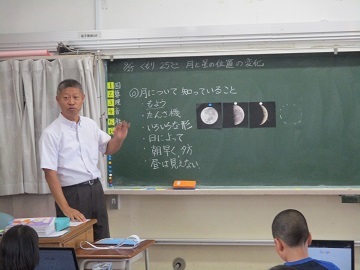 月と星の位置の変化
月について 知っていること
・もよう
・たんさ機
・いろいろな形
・日によって
・朝早く 夕方
・昼は見えない